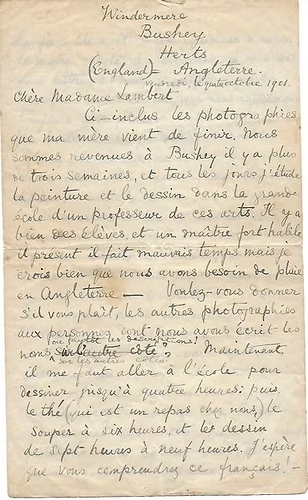 Windermere
Bushey
Herts
(England) = Angleterre.
Vendredi, le quatre octobre 1901.
Chère Madame Lambert
Ci-inclus les photographies
que ma mère vient de finir. Nous
sommes revenues à Bushey il y a plus
de trois semaines, et tous les jours j'étudie
la peinture et le dessin dans la grande
école d'un professeur de ces arts. Il y a
bien des élèves, et un maître fort habile.
il present il fait mauvais temps mais je
crois bien que nous avons besoin de pluie
en Angleterre — Voulez-vous donner
s'il vous plaît, les autres photographies
aux personnes dont nous avons écrit les
ou plutôt les descriptions!
noms sur l'autre côté,
sur les autres côtés.
Maintenant,
il me faut aller à l'école pour
dessiner jusqu'à quatre heures: puis
le thé (qui est un repas chez nous) le
souper à six heures, et les dessin
de sept heures à neuf heures. J'espère
que vous comprendrez ce français! -